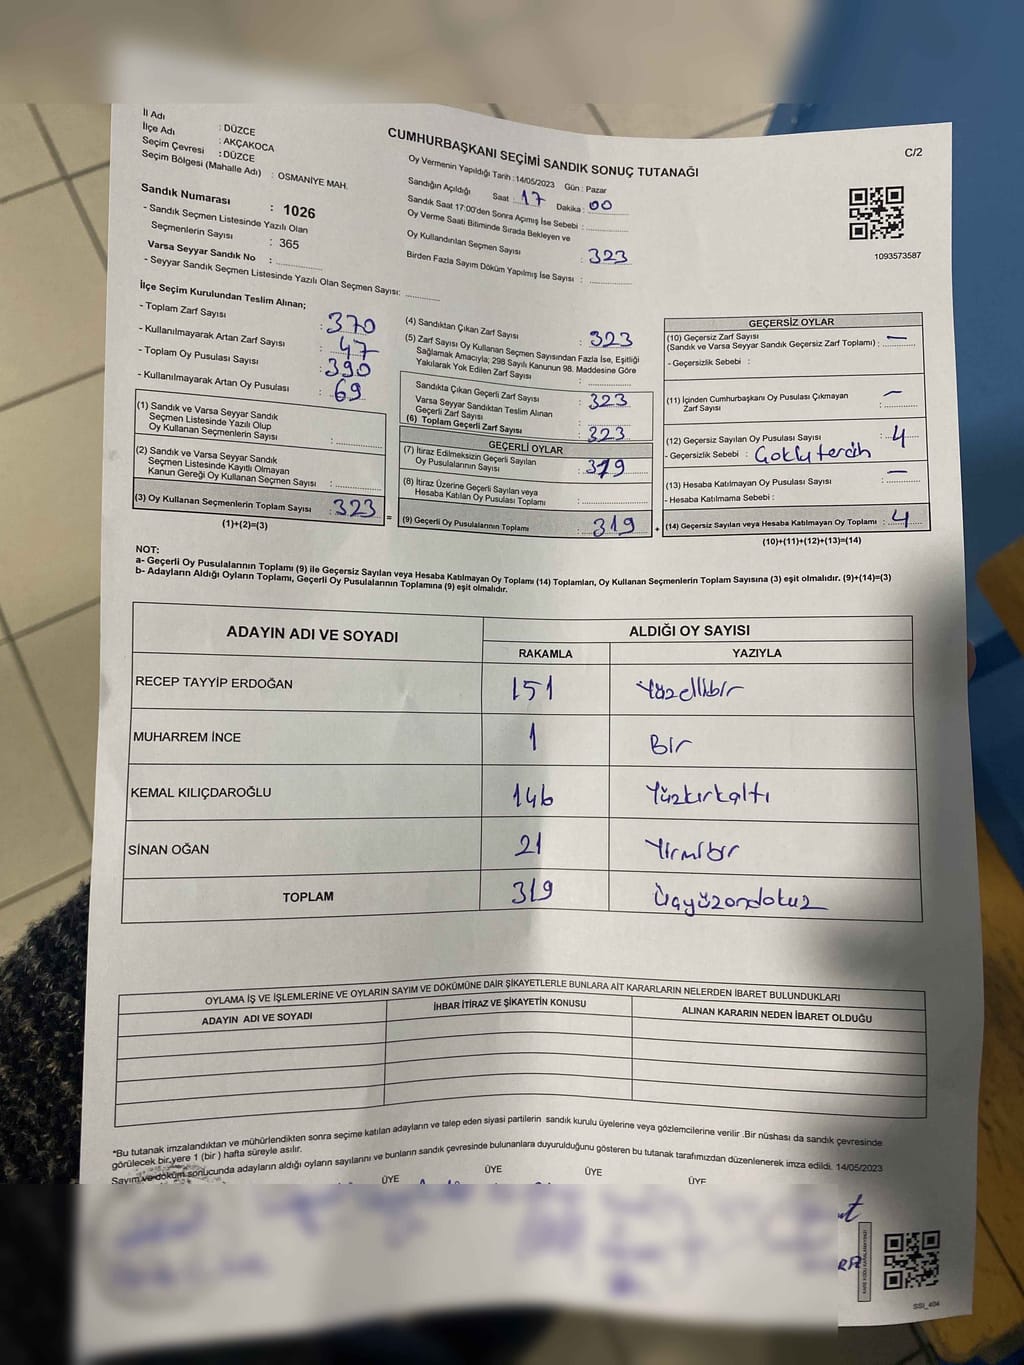 İl Adı : DÜZCE
İlçe Adı : AKÇAKOCA
Seçim Çevresi : DÜZCE
Seçim Bölgesi (Mahalle Adı) : OSMANİYE MAH.
CUMHURBAŞKANI SEÇİMİ SANDIK SONUÇ TUTANAĞI
C/2
Sandık Numarası : 1026
- Sandık Seçmen Listesinde Yazılı Olan
Seçmenlerin Sayısı : 365
Varsa Seyyar Sandık No :
- Seyyar Sandık Seçmen Listesinde Yazılı Olan Seçmen Sayısı:
Oy Vermenin Yapıldığı Tarih :14/05/2023 Gün : Pazar
Sandığın Açıldığı Saat : 17 Dakika : 00
Sandık Saat 17:00'den Sonra Açımış İse Sebebi :
Oy Verme Saati Bitiminde Sırada Bekleyen ve
Oy Kullandırılan Seçmen Sayısı : 323
Birden Fazla Sayım Döküm Yapılmış İse Sayısı :
1093573587
İlçe Seçim Kurulundan Teslim Alınan;
- Toplam Zarf Sayısı : 370
- Kullanılmayarak Artan Zarf Sayısı : 47
- Toplam Oy Pusulası Sayısı : 390
- Kullanılmayarak Artan Oy Pusulası : 69
(1) Sandık ve Varsa Seyyar Sandık
Seçmen Listesinde Yazılı Olup
Oy Kullanan Seçmenlerin Sayısı :
(2) Sandık ve Varsa Seyyar Sandık
Seçmen Listesinde Kayıtlı Olmayan
Kanun Gereği Oy Kullanan Seçmen Sayısı :
(3) Oy Kullanan Seçmenlerin Toplam Sayısı : 323
(1)+(2)=(3)
(4) Sandıktan Çıkan Zarf Sayısı : 323
(5) Zarf Sayısı Oy Kullanan Seçmen Sayısından Fazla İse, Eşitliği
Sağlamak Amacıyla; 298 Sayılı Kanunun 98. Maddesine Göre
Yakılarak Yok Edilen Zarf Sayısı :
Sandıkta Çıkan Geçerli Zarf Sayısı : 323
Varsa Seyyar Sandıktan Teslim Alınan
Geçerli Zarf Sayısı :
(6) Toplam Geçerli Zarf Sayısı : 323
GEÇERLİ OYLAR
(7) İtiraz Edilmeksizin Geçerli Sayılan
Oy Pusulalarının Sayısı : 319
(8) İtiraz Üzerine Geçerli Sayılan veya
Hesaba Katılan Oy Pusulası Toplamı :
= (9) Geçerli Oy Pusulalarının Toplamı : 319 +
GEÇERSİZ OYLAR
(10) Geçersiz Zarf Sayısı
(Sandık ve Varsa Seyyar Sandık Geçersiz Zarf Toplamı) : —
- Geçersizlik Sebebi :
(11) İçinden Cumhurbaşkanı Oy Pusulası Çıkmayan
Zarf Sayısı : —
(12) Geçersiz Sayılan Oy Pusulası Sayısı : 4
- Geçersizlik Sebebi : Çoklu tercih
(13) Hesaba Katılmayan Oy Pusulası Sayısı : —
- Hesaba Katılmama Sebebi :
(14) Geçersiz Sayılan veya Hesaba Katılmayan Oy Toplamı : 4
(10)+(11)+(12)+(13)=(14)
NOT:
a- Geçerli Oy Pusulalarının Toplamı (9) ile Geçersiz Sayılan veya Hesaba Katılmayan Oy Toplamı (14) Toplamları, Oy Kullanan Seçmenlerin Toplam Sayısına (3) eşit olmalıdır. (9)+(14)=(3)
b- Adayların Aldığı Oyların Toplamı, Geçerli Oy Pusulalarının Toplamına (9) eşit olmalıdır.
ADAYIN ADI VE SOYADI ALDIĞI OY SAYISI
RAKAMLA YAZIYLA
RECEP TAYYİP ERDOĞAN 151 Yüzellibir
MUHARREM İNCE 1 Bir
KEMAL KILIÇDAROĞLU 146 Yüzkırkaltı
SİNAN OĞAN 21 Yirmibir
TOPLAM 319 Üçyüzondokuz
OYLAMA İŞ VE İŞLEMLERİNE VE OYLARIN SAYIM VE DÖKÜMÜNE DAİR ŞİKAYETLERLE BUNLARA AİT KARARLARIN NELERDEN İBARET BULUNDUKLARI
ADAYIN ADI VE SOYADI İHBAR İTİRAZ VE ŞİKAYETİN KONUSU ALINAN KARARIN NEDEN İBARET OLDUĞU
*Bu tutanak imzalandıktan ve mühürlendikten sonra seçime katılan adayların ve talep eden siyasi partilerin sandık kurulu üyelerine veya gözlemcilerine verilir .Bir nüshası da sandık çevresinde
görülecek bir yere 1 (bir ) hafta süreyle asılır.
Sayım ve döküm sonucunda adayların aldığı oyların sayılarını ve bunların sandık çevresinde bulunanlara duyurulduğunu gösteren bu tutanak tarafımızdan düzenlenerek imza edildi. 14/05/2023
ÜYE ÜYE ÜYE ÜYE
SSİ_404